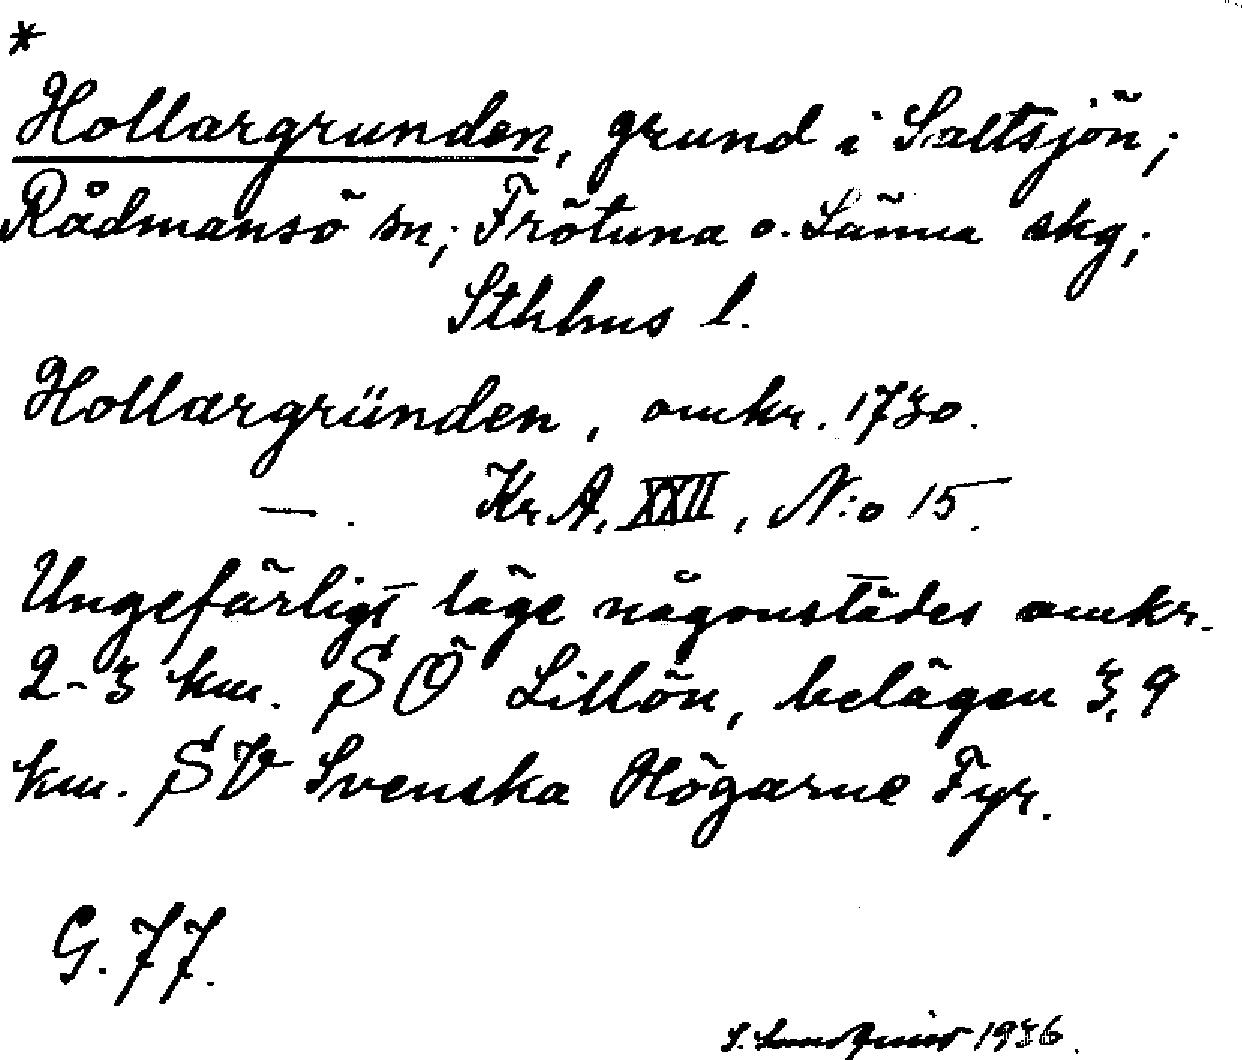 *
Hollargrunden, grund i Saltsjön;
Rådmansö sn; Frötuna o. Länna skg;
Sthhus l.
Hollargründen, omkr. 1730.
— . Kr. A. XXII, N:o 15.
Ungefärligt läge någonstädes omkr.
2-3 km. SÖ Lillön, belägen 3,9
km. SV Svenska Högarne Fyr.
G. 77.
1936.